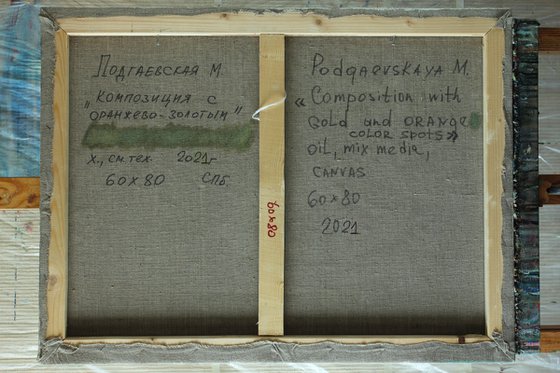 Подгаевская М.
„Композиция с
оранжево-золотым"
х., см.тех. 2021г
60х80 СПб.
60х80
Podgaevskaya M.
«Composition with
Gold and orange
color spots»
oil, mix media,
canvas
60х80
2021